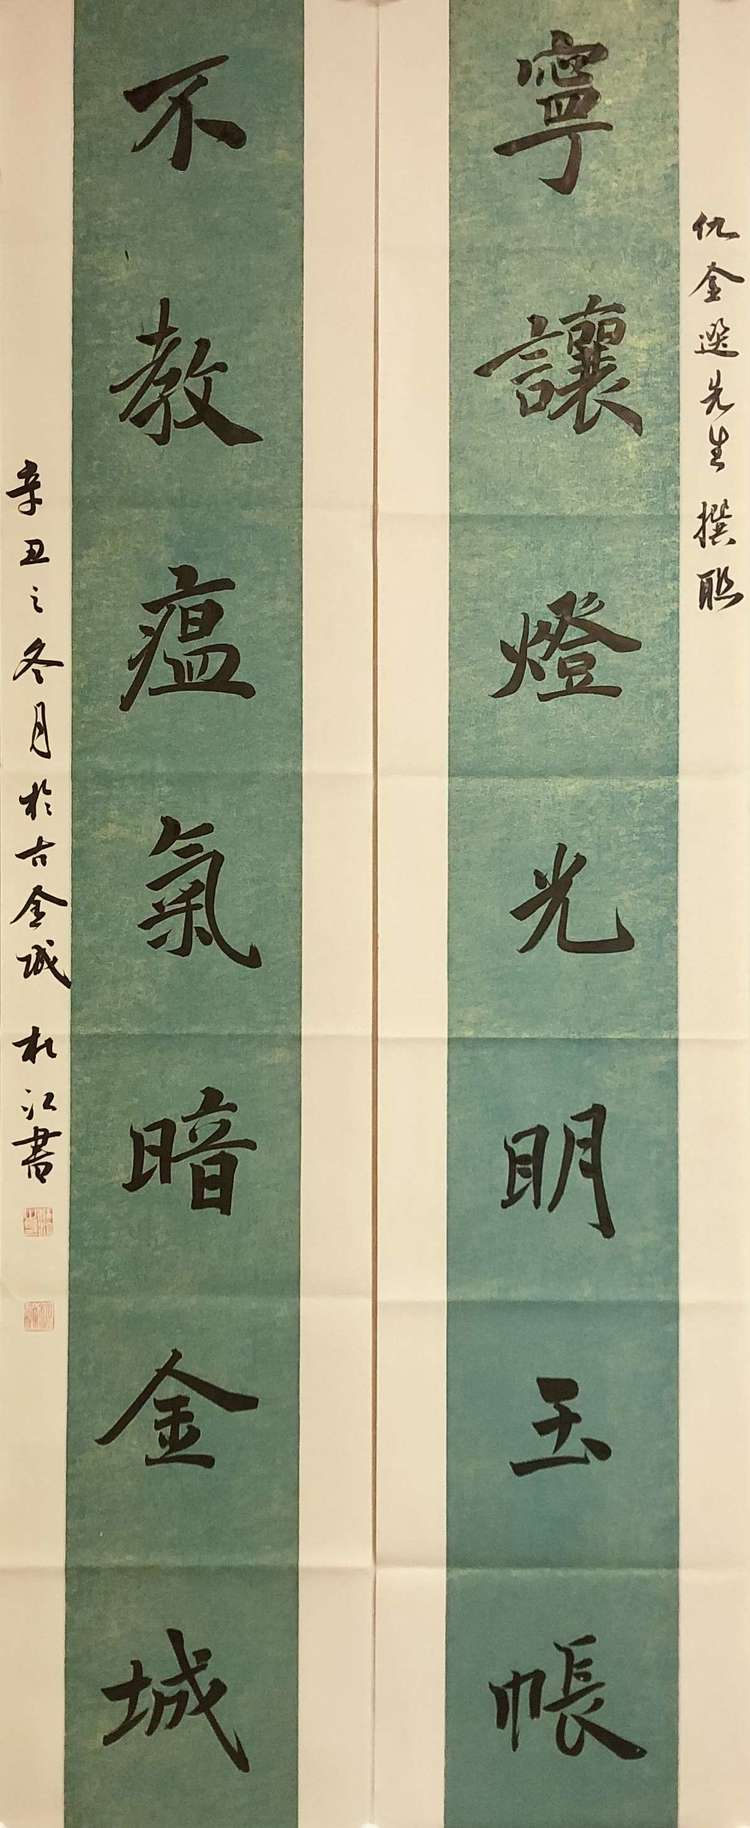 仇金选先生撰联
寧讓燈光明玉帳
不教瘟氣暗金城
辛丑之冬月於古金城 杜江書